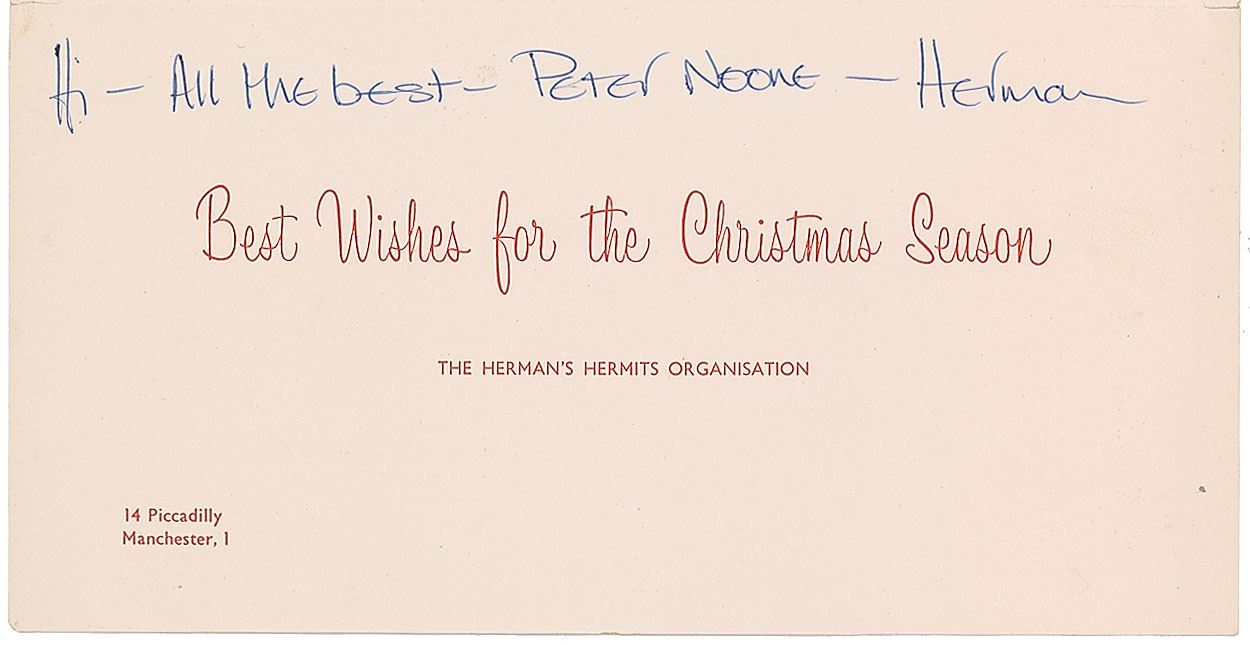 Hi - All the best - Peter Noone - Herman
Best Wishes for the Christmas Season
THE HERMAN'S HERMITS ORGANISATION
14 Piccadilly
Manchester, 1